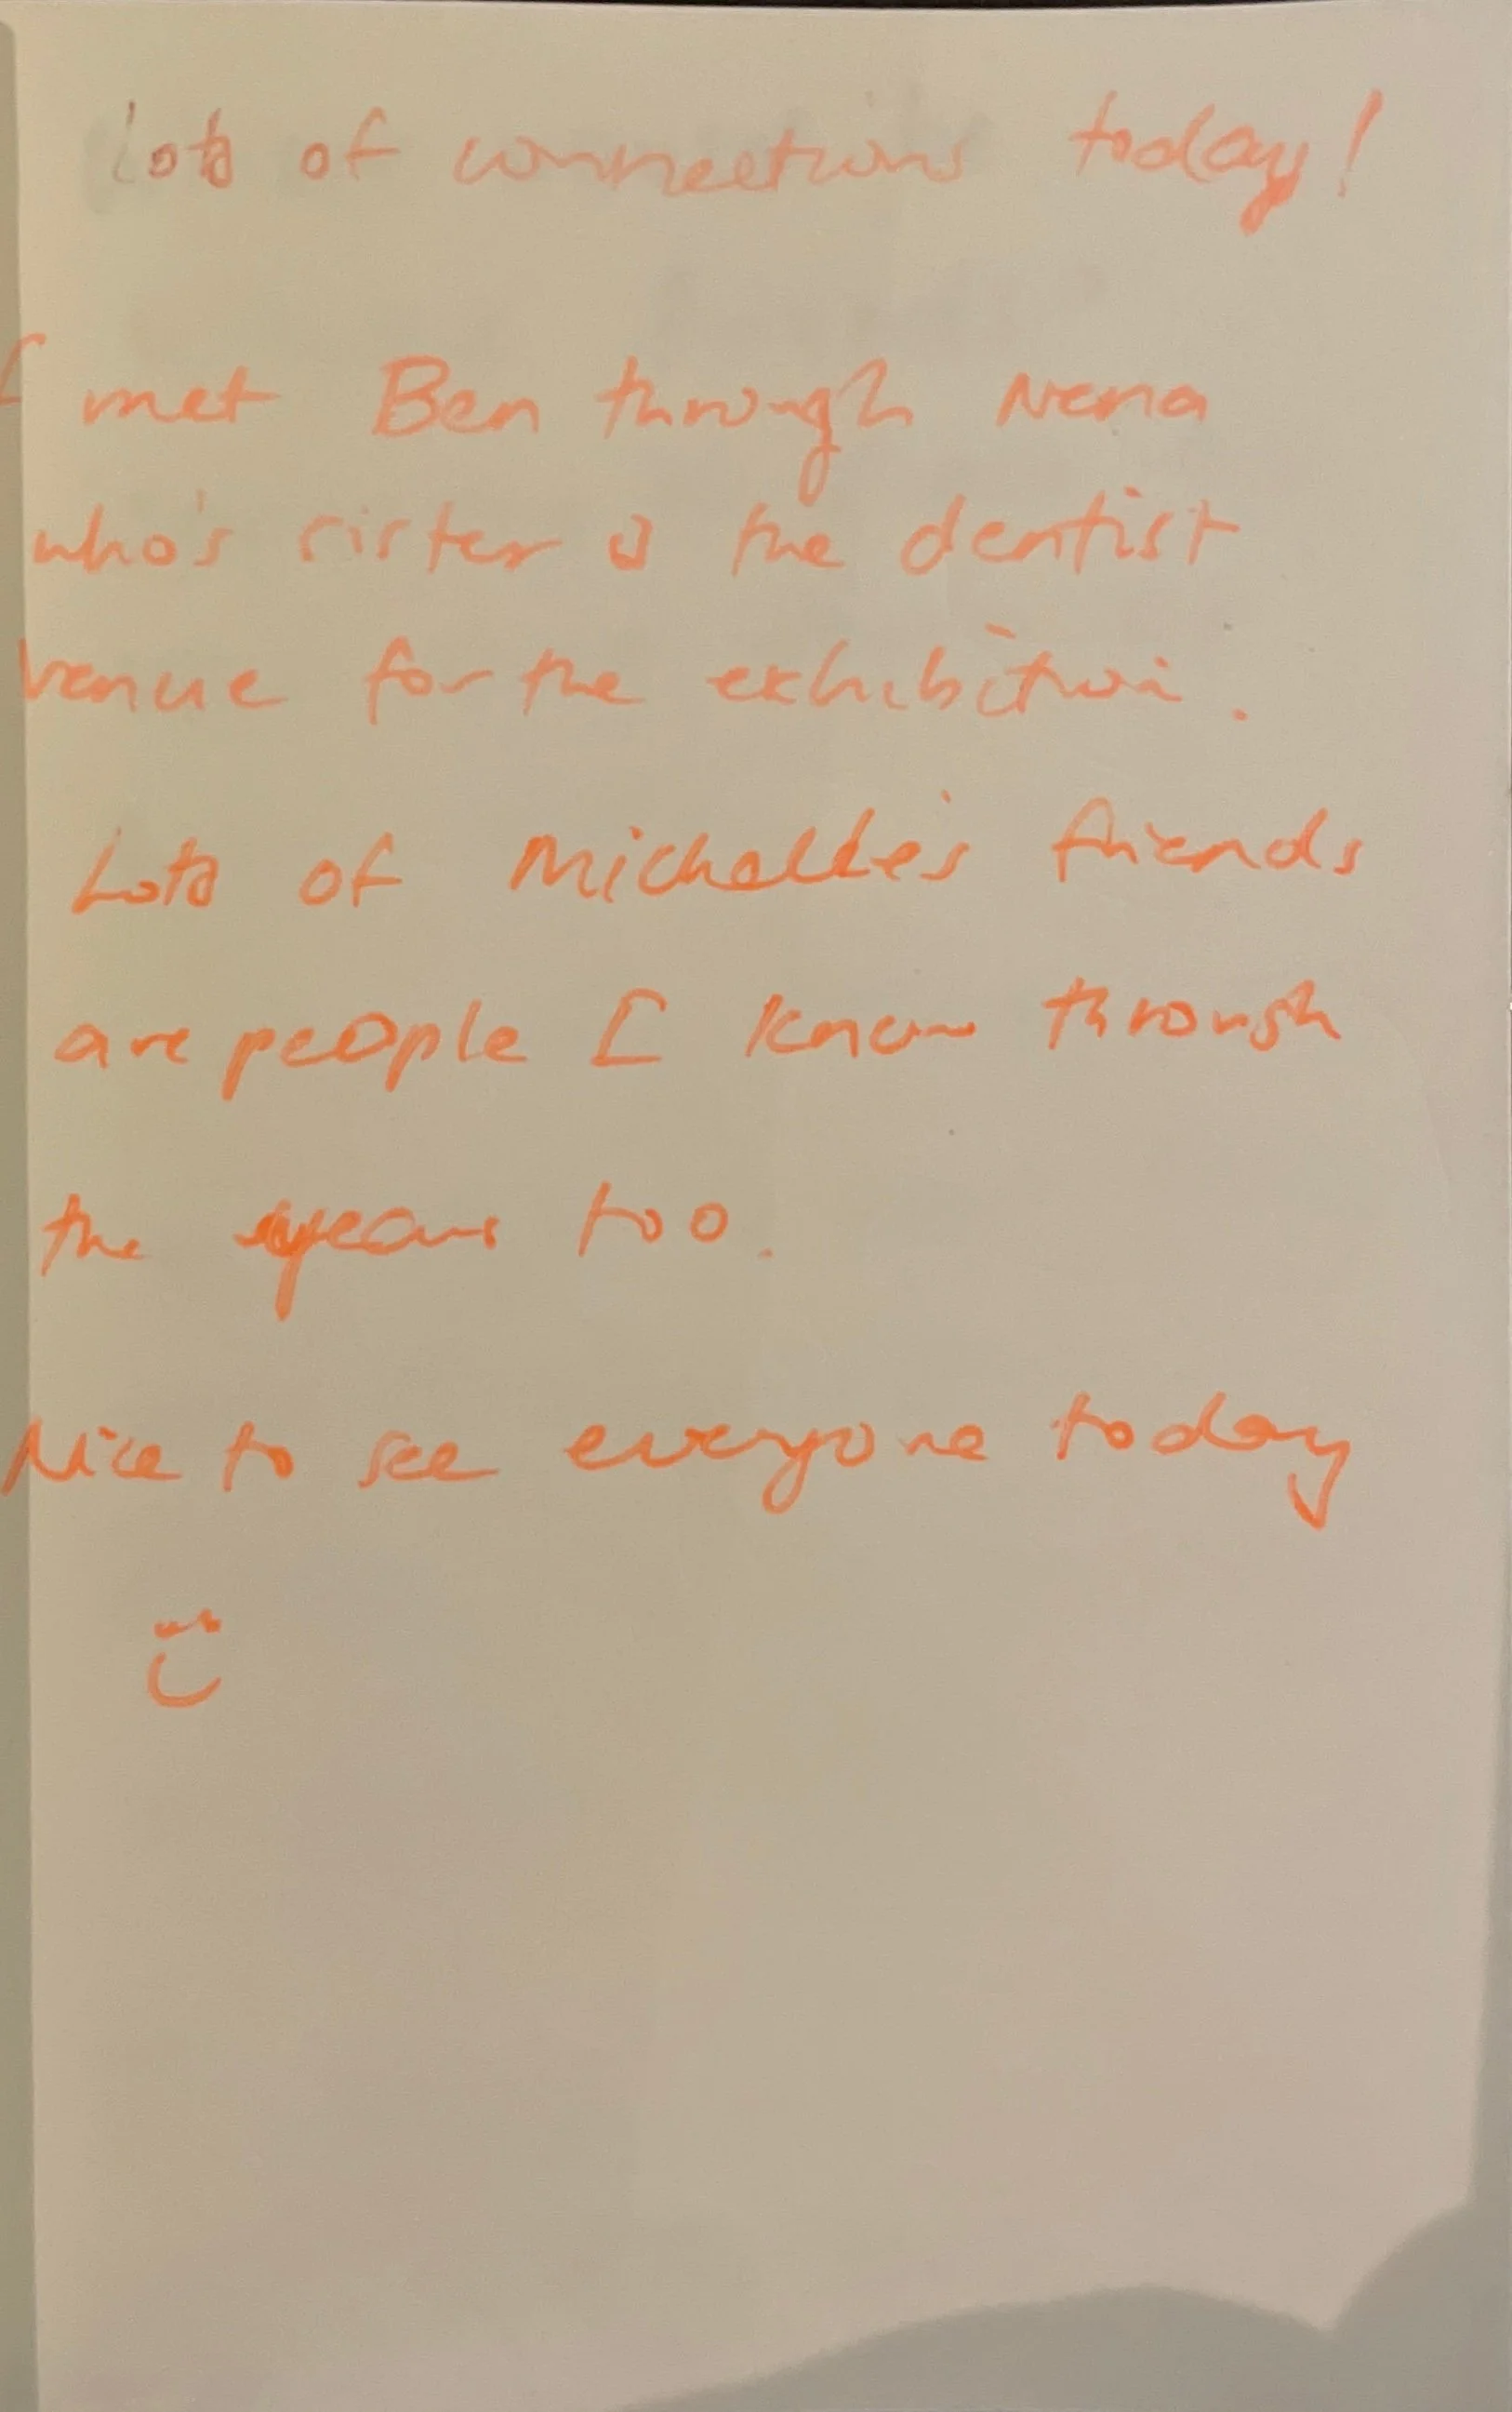 Lots of connections today!
I met Ben through Nena
who's sister is the dentist
venue for the exhibition.
Lots of Michelle's friends
are people I know through
the years too.
Nice to see everyone today